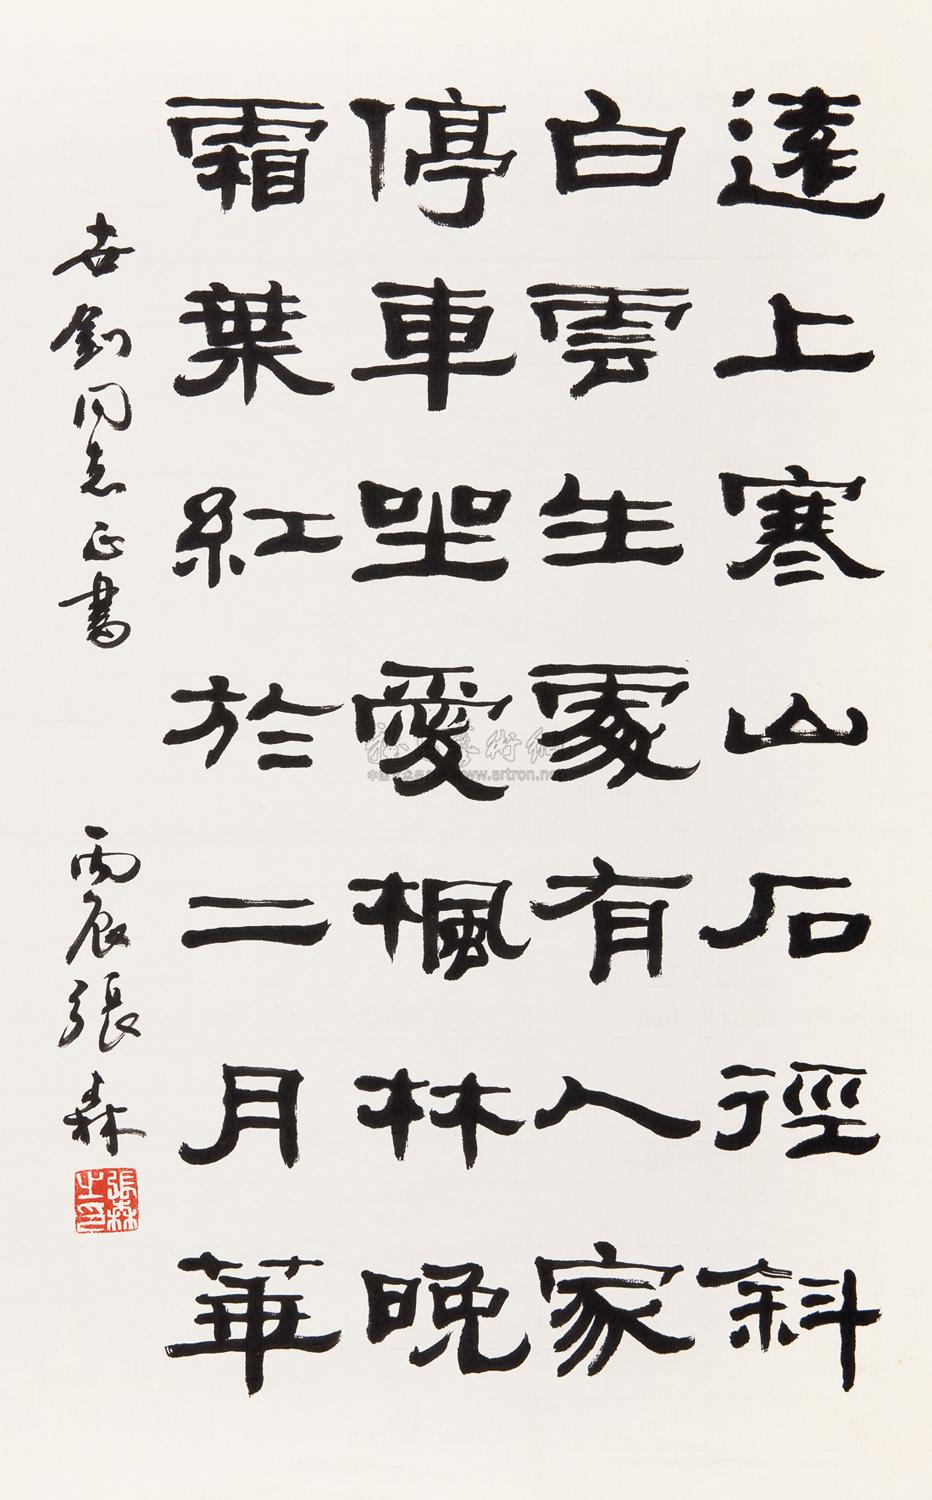 遠上寒山石徑斜
白雲生處有人家
停車坐愛楓林晚
霜葉紅於二月華
同志正書
丙辰張森
張森之印
www.artron.net